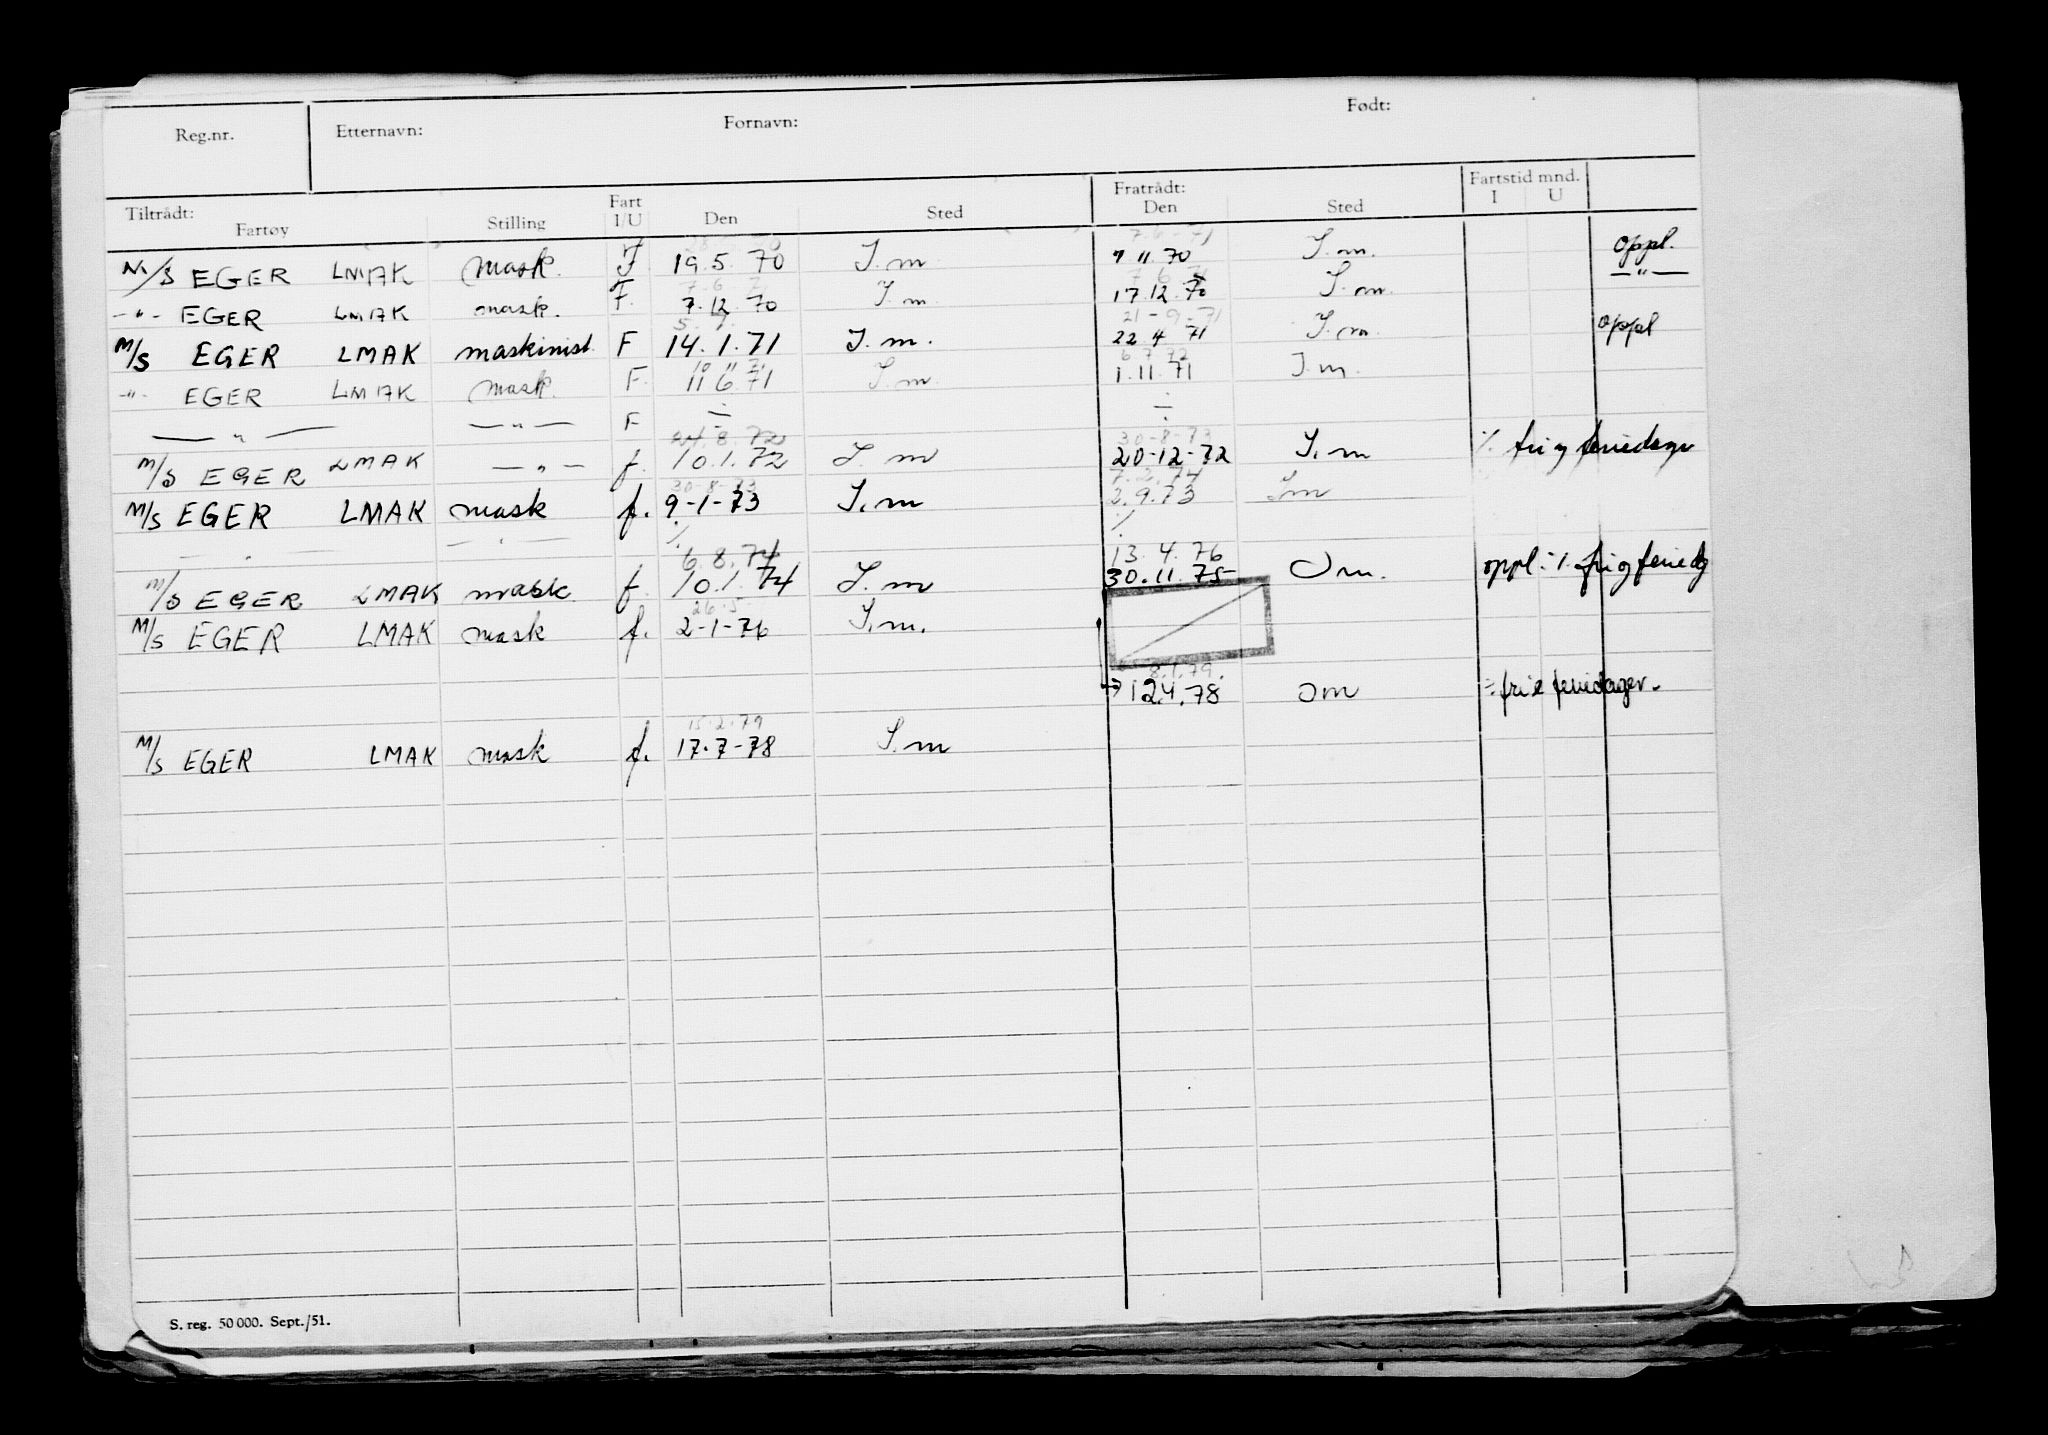 Reg.nr. Etternavn: Fornavn: Født:
Tiltrådt: Fart Fratrådt: Fartstid mnd.
Fartøy Stilling I/U Den Sted Den Sted I U
7.6-71
M/S EGER LMAK Mask. F. 19.5.70 S.m 7 11.70 S.m. oppl.
7.6.71 7 6 71
-"- EGER LMAK mask. F. 7.12.70 S.m 17.12.70 S.m. —"—
21-9-71
M/S EGER LMAK maskinist. F 14.1.71 S.m. 22 4 71 S.m oppl
10 11 71 6 7 72
-"- EGER LMAK Mask. F. 11 6.71 S.m 1.11.71 S.m.
—"— —"— F ÷ ÷
24.8.72 30-8-73
M/S EGER LMAK —"— f. 10.1.72 S.m 20-12-72 S.m ./. fri og feriedage
30-8-73 7.2.74
M/S EGER LMAK mask f. 9-1-73 S.m 2.9.73 S.m
—"— —"— ./. ./.
6.8.74 13.4.76
M/S EGER LMAK mask f. 10.1.74 S.m 30.11.75 Om. oppl. ./. fri og feriedg
26.5
M/S EGER LMAK mask f. 2-1-76 S.m.
8.1.79.
→ 12.4.78 om ÷ fri & feriedager.
15.2.79
M/S EGER LMAK mask f. 17.7-78 S.m
S. reg. 50 000. Sept./51.